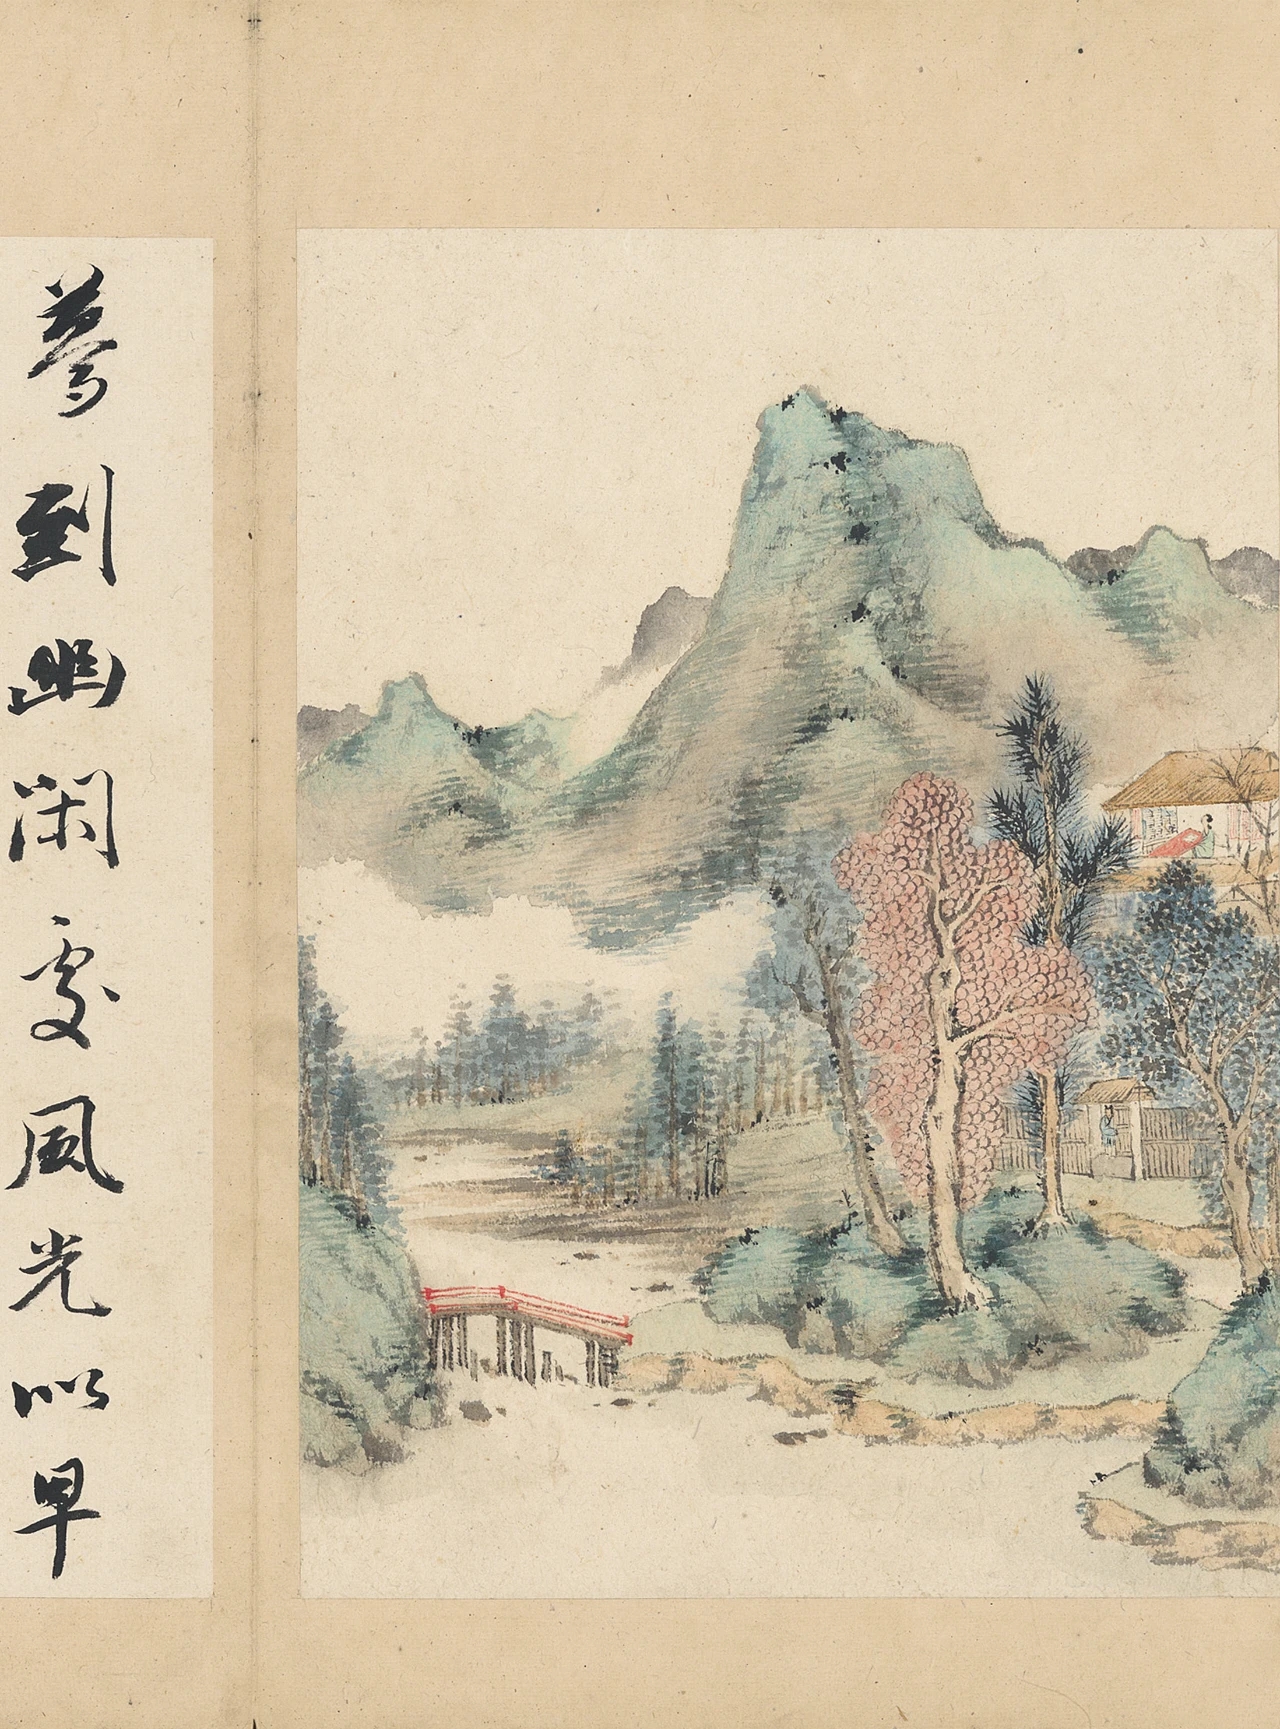 夢到幽閑處風光似早